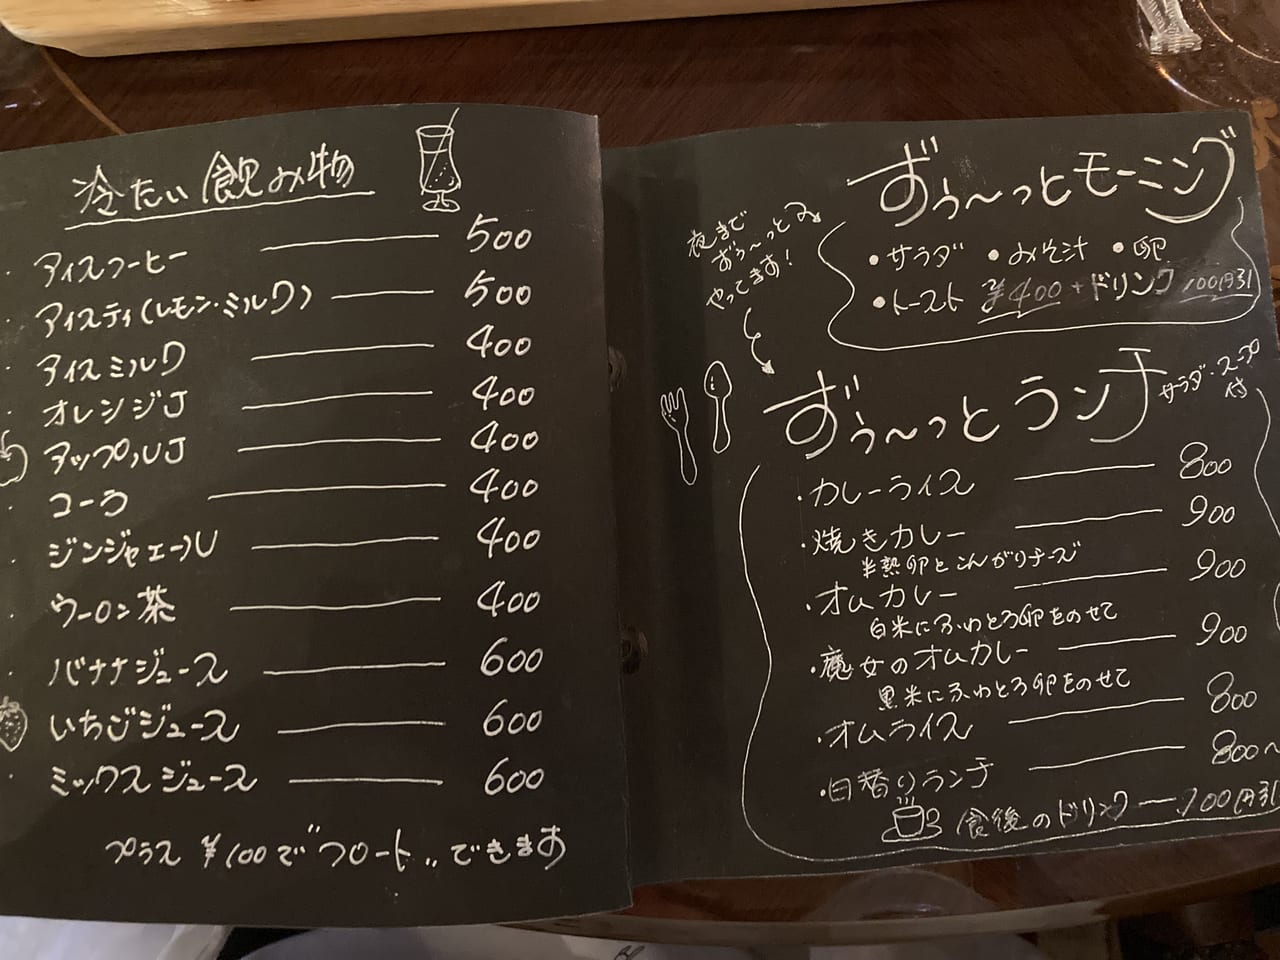 冷たい飲み物
アイスコーヒー 500
アイスティ(レモン・ミルク) 500
アイスミルク 400
オレンジJ 400
アップルJ 400
コーラ 400
ジンジャエール 400
ウーロン茶 400
バナナジュース 600
いちごジュース 600
ミックスジュース 600
プラス ¥100で"フロート"できます
夜まで
ずぅ〜っと
やってます!
ずぅ〜っとモーニング
・サラダ ・みそ汁 ・卵
・トースト ¥400+ドリンク100円引
ずぅ〜っとランチ サラダ・スープ付
・カレーライス 800
・焼きカレー 900
半熟卵とこんがりチーズ
・オムカレー 900
白米にふわとろ卵をのせて
・魔女のオムカレー 900
黒米にふわとろ卵をのせて
・オムライス 800
・日替りランチ 800〜
食後のドリンク 100円引